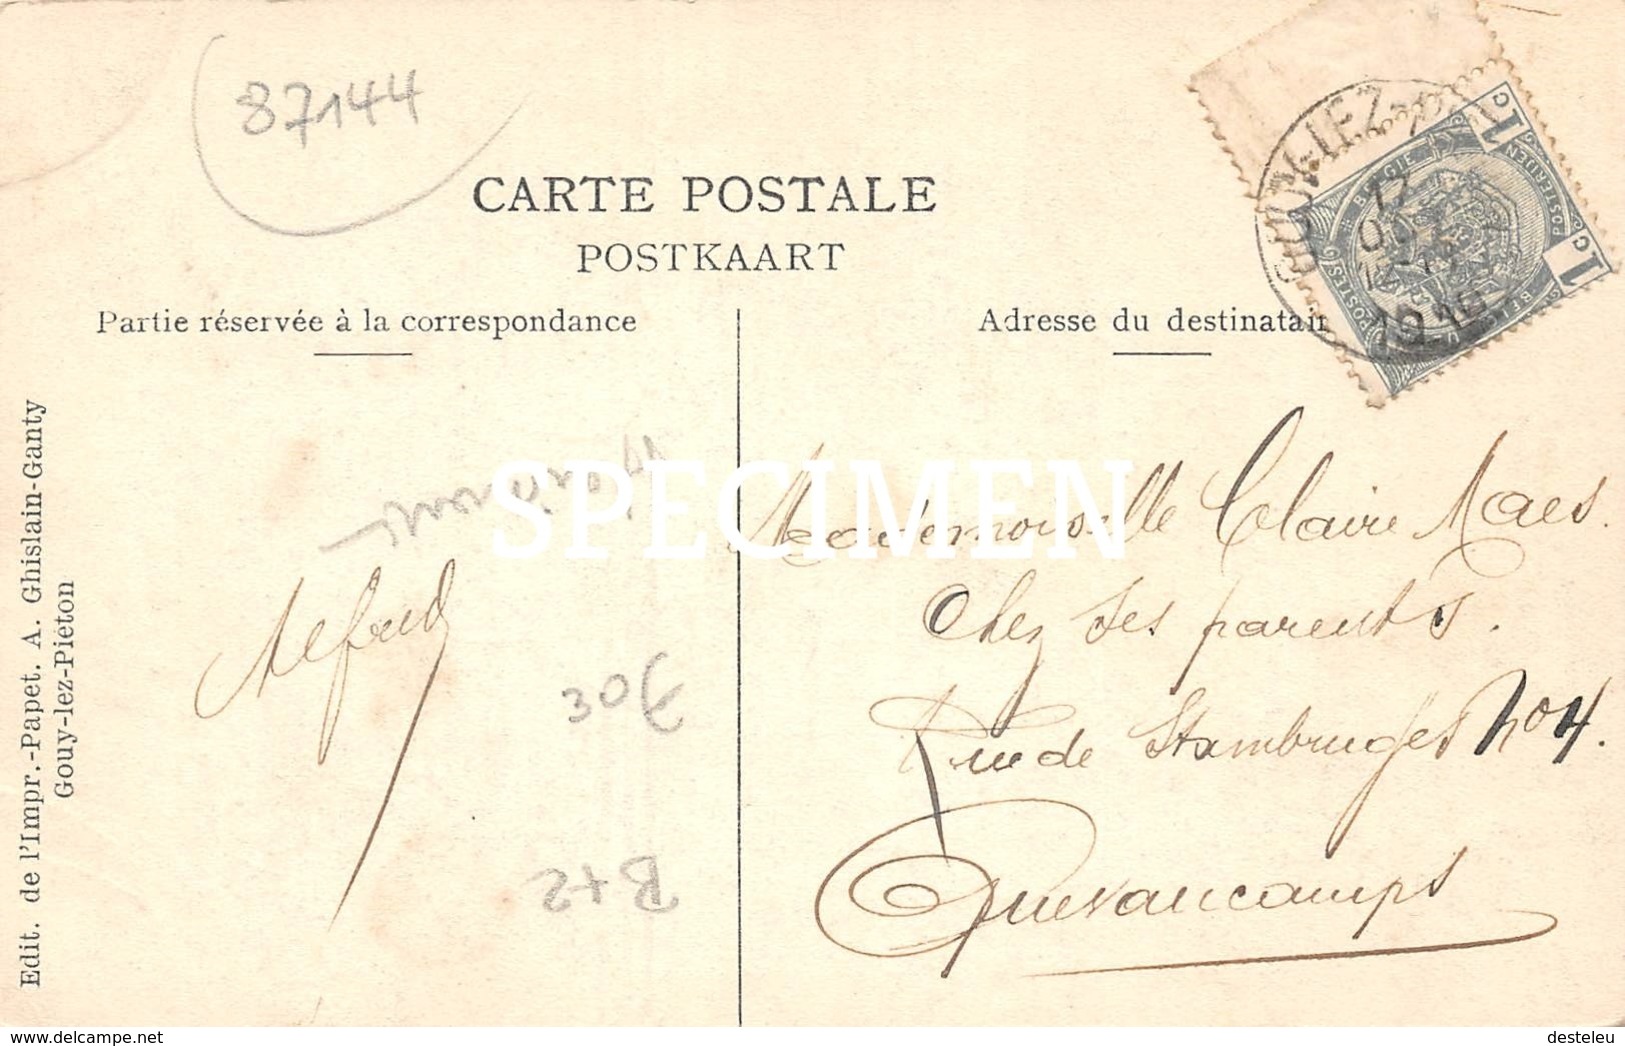 87144
CARTE POSTALE
POSTKAART
Partie réservée à la correspondance
Adresse du destinatair
GOUY-LEZ-PIÉTON
17
OCT
1910
BELGIE
POSTES
POSTERIJEN
1 C
1 C
SPECIMEN
Alfred
30€
B+2
Mademoiselle Claire Maes.
Chez ses parents.
Rue de Stambruges no 4.
Quevaucamps
Edit. de l'Impr.-Papet. A. Ghislain-Ganty
Gouy-lez-Piéton
http://www.delcampe.net
desteleu